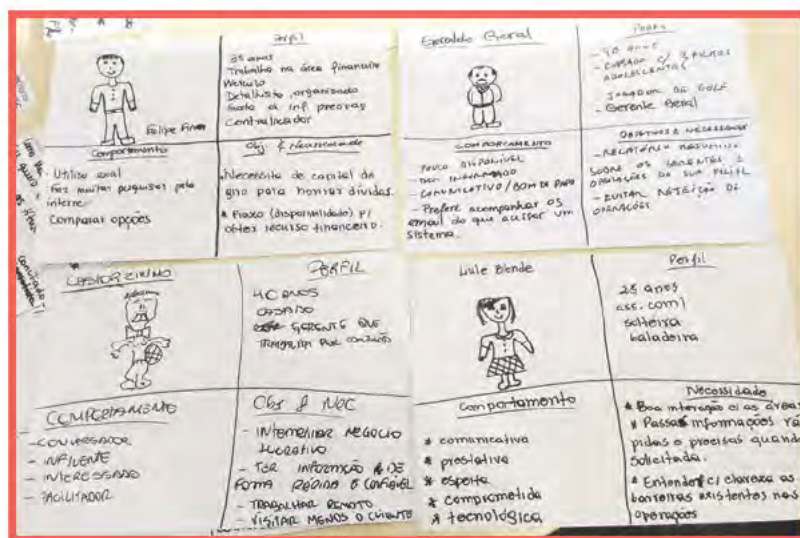 Perfil
35 anos
Trabalha na área financeira
Metículo
Detalhista, organizado
Gosta de inf. precisas
Controlador
Felipe Finan
Comportamento
Utiliza
Faz muitas pesquisas pela
interne
Comparar opções
Obj & Necessidade
•Necessita de capital de
giro para honrar dívidas.
* Prazo (disponibilidade) p/
obter recurso financeiro.
Geraldo Geral
Perfil
- CASADO C/ 2 FILHOS
ADOLESCENTES
JOGADOR DE GOLF
- Gerente Geral
COMPORTAMENTO
POUCO DISPONÍVEL
BEM INFORMADO
- COMUNICATIVO / BOM DE PAPO
- Prefere acompanhar os
email do que acessar um
sistema.
OBJETIVOS & NECESSIDADE
- RELATÓRIO RESUMIDO
SOBRE OS
OPERAÇÕES DA SUA FILIAL
- EVITAR REJEIÇÃO DE
OPERAÇÕES
PERFIL
40 ANOS
CASADO
GERENTE QUE
TRABALHA POR
COMPORTAMENTO
- CONVERSADOR
- INFLUENTE
- INTERESSADO
- FACILITADOR
Obj & NEC
- INTERMEDIAR NEGOCIO
LUCRATIVO
- TER INFORMAÇÃO DE
FORMA RÁPIDA E CONFIÁVEL
- TRABALHAR REMOTO
- VISITAR MENOS O CLIENTE
Perfil
25 anos
ass. com
solteira
baladeira
Comportamento
* comunicativa
* prestativa
* esperta
* comprometida
* tecnológica
Necessidade
* Boa interação c/ as áreas
* Passar informações rá
pidas e precisas quando
solicitada.
* Entender c/ clareza as
barreiras existentes nas
operações